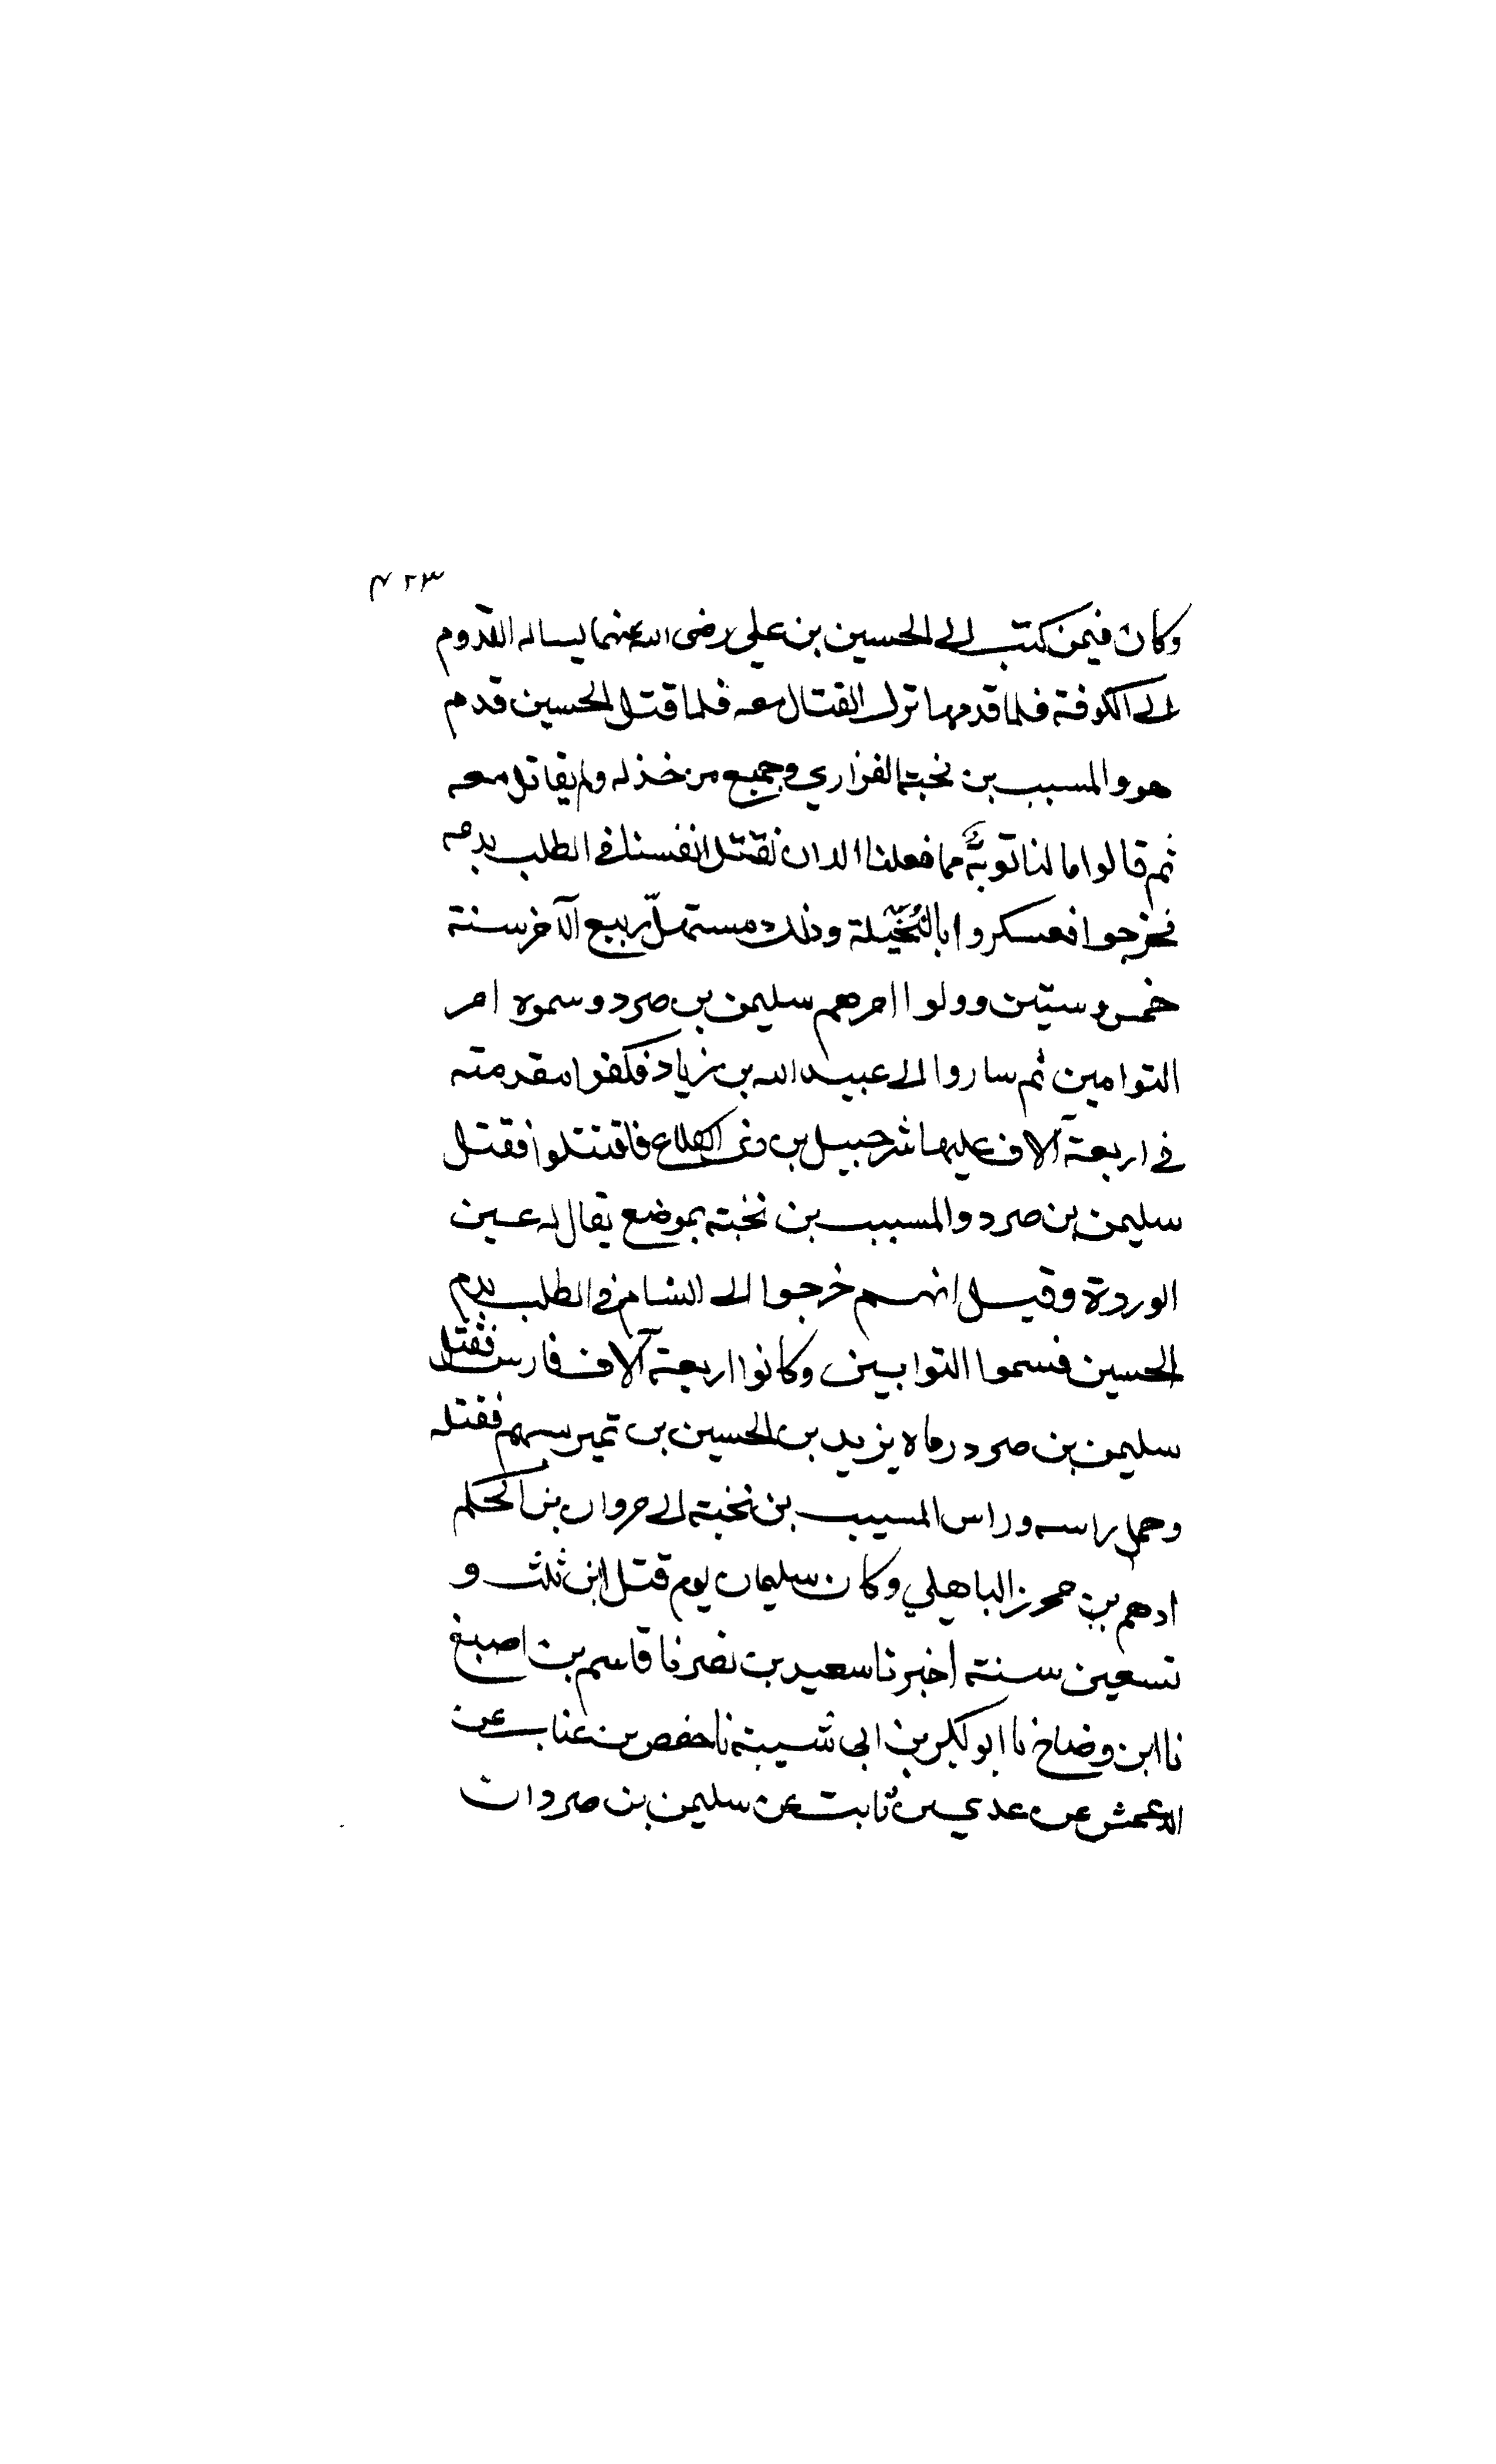 ٤٢٣
وكان فيمن كتب الى الحسين بن علي رضى الله عنهما يساله القدوم
الى الكوفة فلما قدمها ترك القتال معه فلما قتل الحسين قدم
هو والمسيب بن نخبة الفزاري وجميع من خذله ولم يقاتل معه
ثم قالوا ما لنا توبةٌ مما فعلنا الا ان نقتل انفسنا في الطلب بدمه
فخرجوا فعسكروا بالنُّخَيلة وذلك مستهلّ ربيع الآخر سنة
خمس وستين وولوا امرهم سليمن بن صرد وسموه امر
التوامين ثم ساروا الى عبيد الله بن زياد فلقوا مقدمته
في اربعة آلاف عليها شرحبيل بن ذى الكلاع فاقتتلوا فقتل
سليمن بن صرد والمسيب بن نخبة بموضع يقال له عين
الوردة وقيل انهم خرجوا الى الشام في الطلب بدم
الحسين فسموا التوابين وكانوا اربعة آلاف فارس فقتل
سليمن بن صرد رماه يزيد بن الحسين بن نمير بسهم فقتله
وحمل راسه وراس المسيب بن نخبة الى مروان بن الحكم
ادهم بن محرز الباهلي وكان سليمان يوم قتل ابن ثلث و
تسعين سنة اخبرنا سعيد بن نصر نا قاسم بن اصبغ
نا ابن وضاح نا ابو بكر بن ابى شيبة نا حفص بن عتاب عن
الاعمش عن عدي بن ثابت عن سليمن بن صرد ان